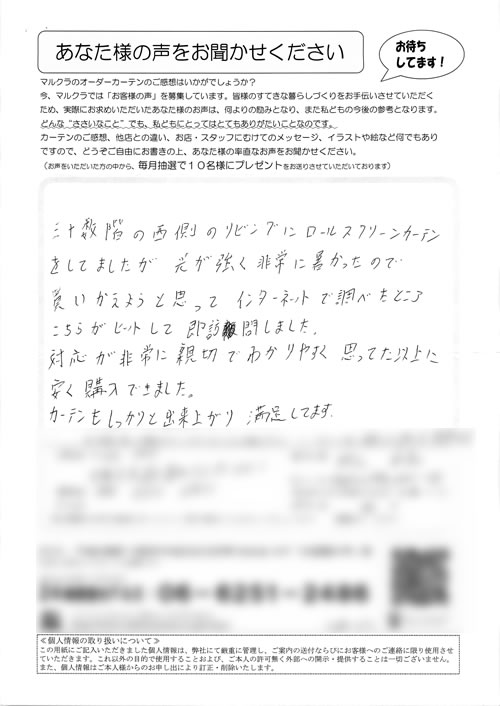 あなた様の声をお聞かせください
お待ち
してます！
マルクラのオーダーカーテンのご感想はいかがでしょうか？
今、マルクラでは「お客様の声」を募集しています。皆様のすてきな暮らしづくりをお手伝いさせていただく
ため、実際にお求めいただいたあなた様のお声は、何よりの励みとなり、また私どもの今後の参考となります。
どんな“ささいなこと”でも、私どもにとってはとてもありがたいことなのです。
カーテンのご感想、他店との違い、お店・スタッフにむけてのメッセージ、イラストや絵など何でもあり
ですので、どうぞご自由にお書きの上、あなた様の率直なお声をお聞かせください。
（お声をいただいた方の中から、毎月抽選で１０名様にプレゼントをお送りさせていただいております）
三十数階の西側のリビングにロールスクリーンカーテン
をしてましたが 光が強く非常に暑かったので
買いかえようと思って インターネットで調べたところ
こちらがヒットして 即訪問しました。
対応が非常に親切でわかりやすく 思ってた以上に
安く購入できました。
カーテンもしっかりと出来上がり 満足してます。
06-6251-2486
≪個人情報の取り扱いについて≫
この用紙にご記入いただきました個人情報は、弊社にて厳重に管理し、ご案内の送付ならびにお客様へのご連絡に限り使用させ
ていただきます。これ以外の目的で使用することおよび、ご本人の許可無く外部への開示・提供することは一切ございません。
また、個人情報はご本人様からのお申し出により訂正・削除いたします。